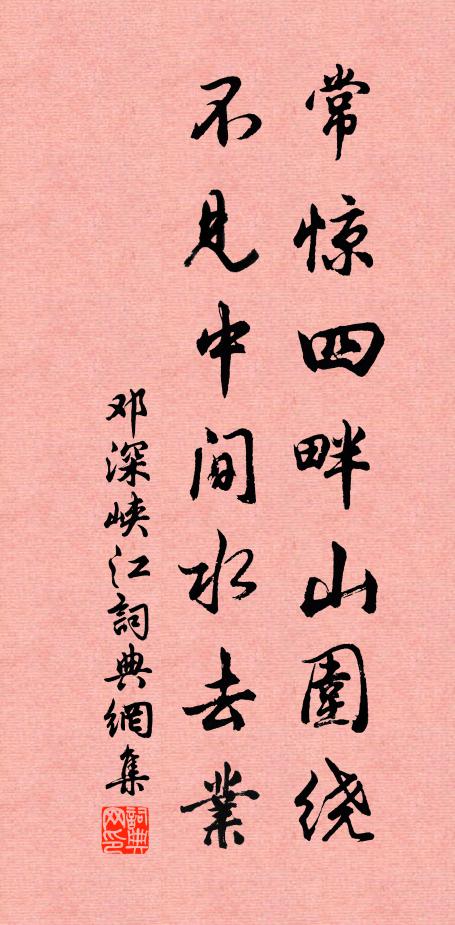 常惊四畔山围绕
不见中间水去業
邓深峡江詞典網集
詞典网印